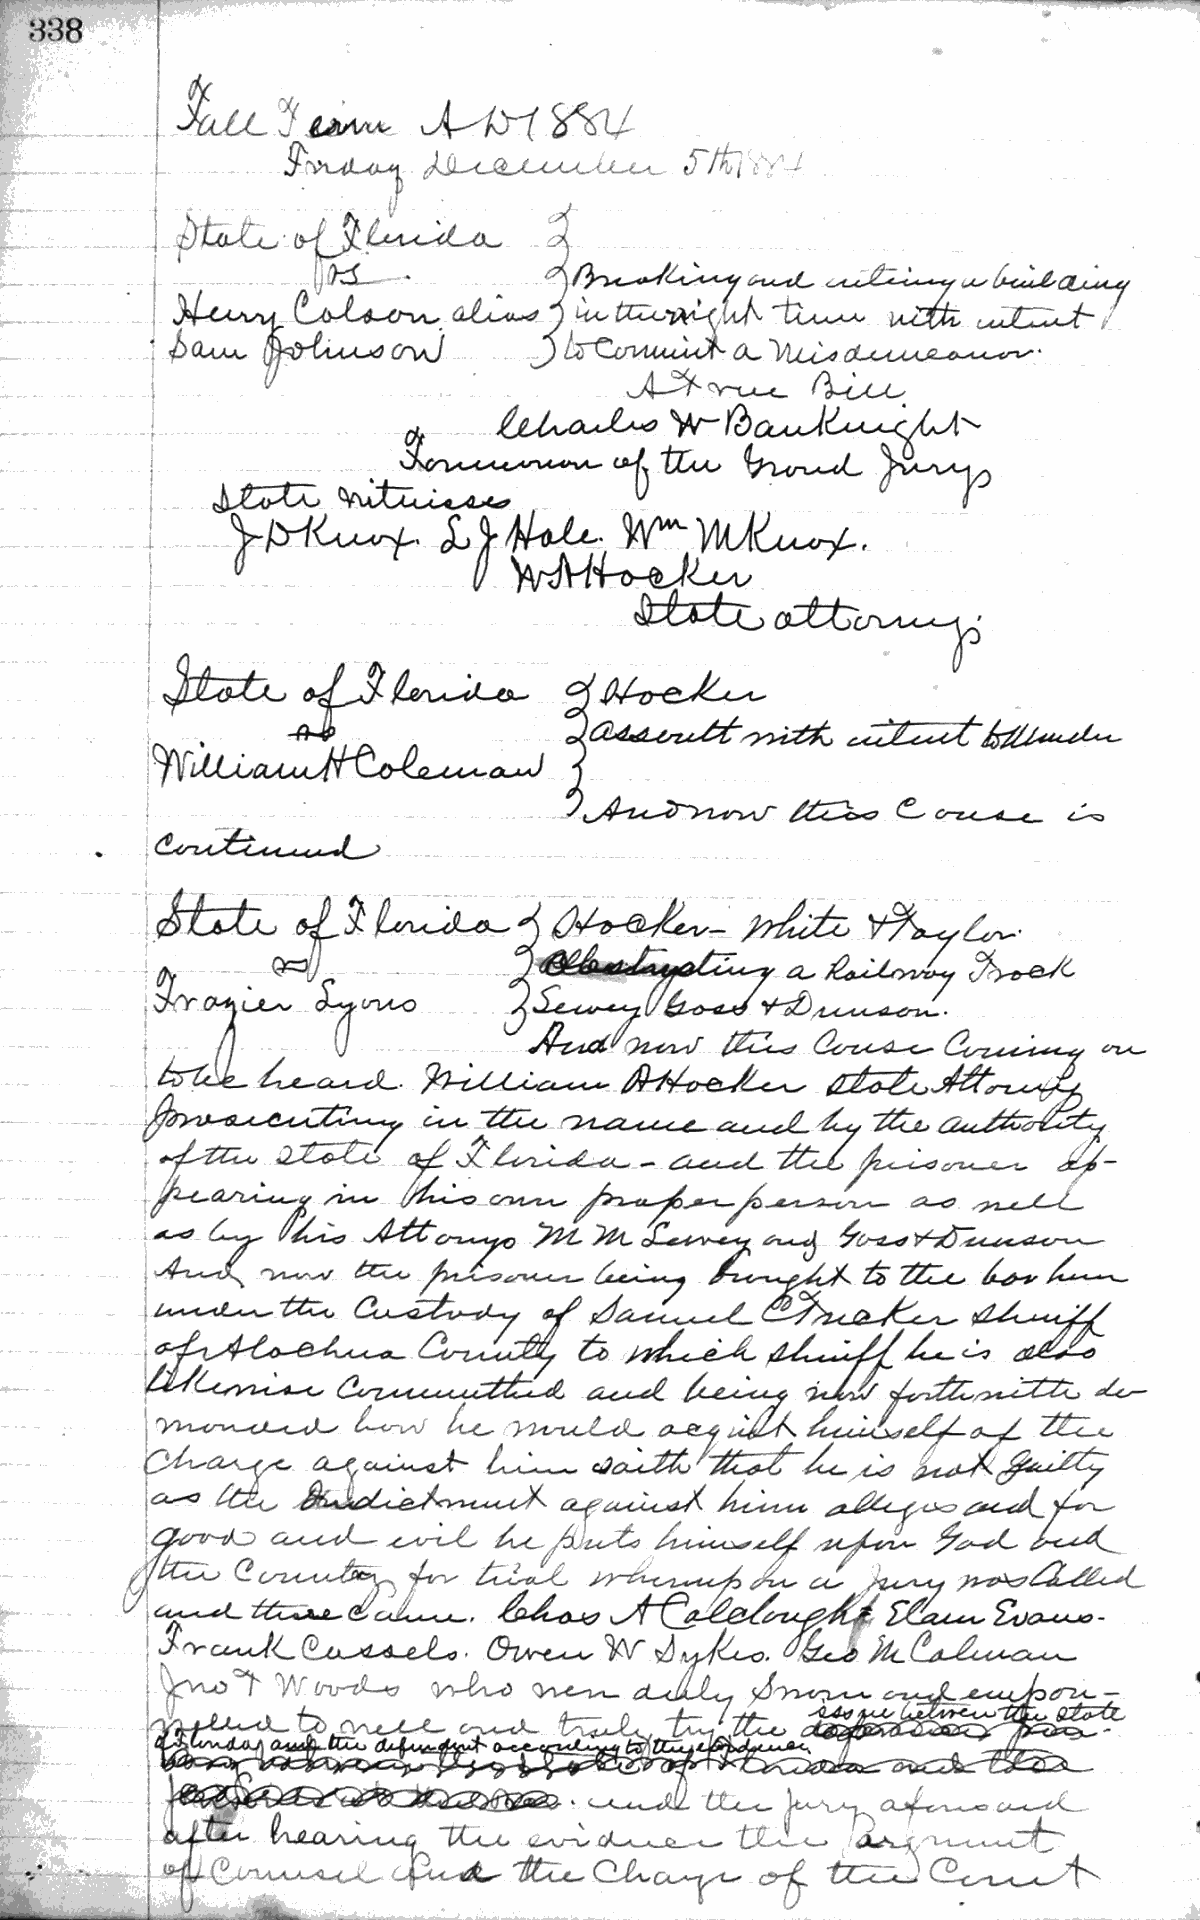 338
Fall Term A D 1884
Friday December 5th 1884
State of Florida
vs.
Breaking and entering a building
Henry Colson alias in the night time with intent
Sam Johnson to Commit a Misdemeanor.
A True Bill.
Charles W BauKnight
Foreman of the Grand Jury
State Witnesses
J D Knox. L J Hale. Wm M Knox.
W A Hocker
State attorney
State of Florida Hocker
vs
Assault with intent to Murder
William H Coleman
And now this Cause is
Continued
State of Florida Hocker - White & Taylor
vs Obstructing a Railway Track
Frazier Lyons Sewey Goss & Dunson.
And now this Cause Coming on
to be heard. William A Hocker State Attorney
prosecuting in the name and by the authority
of the State of Florida - and the prisoner ap-
pearing in his own proper person as well
as by his Attonys M M Sewey and Goss & Dunson
And now the prisoner being brought to the bar here
under the Custody of Samuel C Tucker Sheriff
of Alachua County to which Sheriff he is also
likewise Committed and being now forthwith de-
manded how he would acquit himself of the
Charge against him saith that he is not Guilty
as the Indictment against him alleges and for
good and evil he puts himself upon God and
the Country for trial whereupon a Jury was Called
and there Came. Chas A Colclough Elam Evans.
Frank Cassels. Owen W Sykes. Geo M Colman
Jno T Woods who were duly Sworn and empan-
issue between the State
nelled to well and truly try the
of Florida and the defendant according to the evidence
and the Jury aforesaid
after hearing the evidence the argument
of Counsel and the Charge of the Court